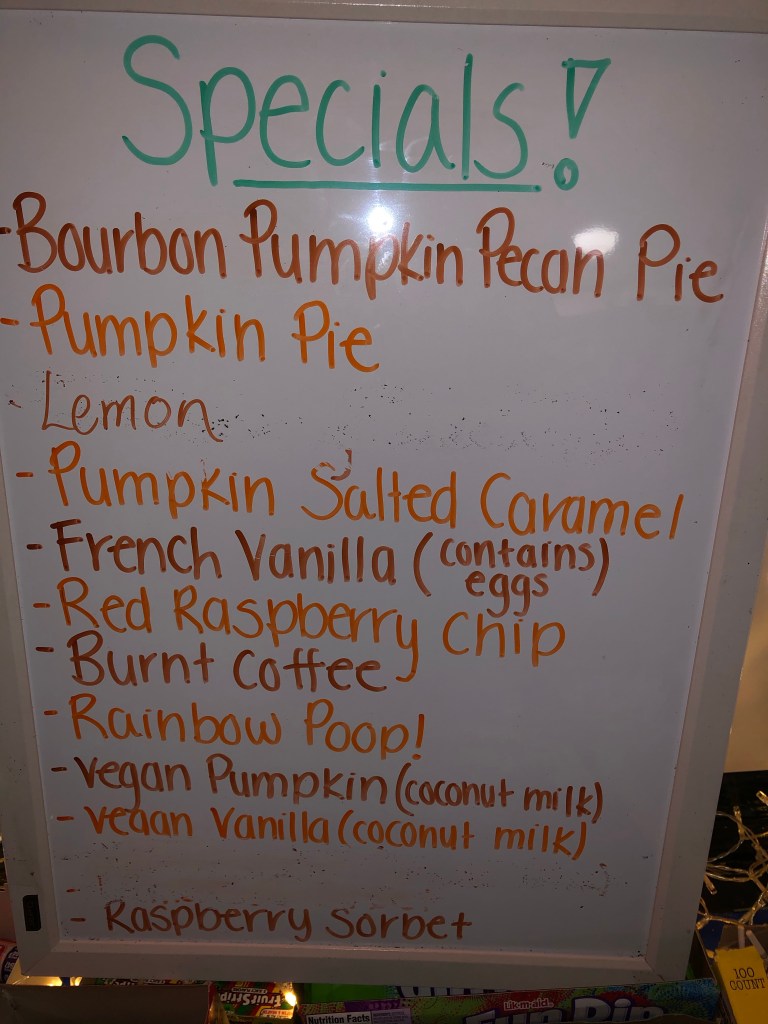 Specials!
- Bourbon Pumpkin Pecan Pie
- Pumpkin Pie
- Lemon
- Pumpkin Salted Caramel
- French Vanilla (contains eggs)
- Red Raspberry Chip
- Burnt Coffee
- Rainbow Poop!
- Vegan Pumpkin (coconut milk)
- Vegan Vanilla (coconut milk)
-
- Raspberry Sorbet
100
COUNT
Fruit Stripe
Nutrition Facts
Lik-m-aid
Fun Dip